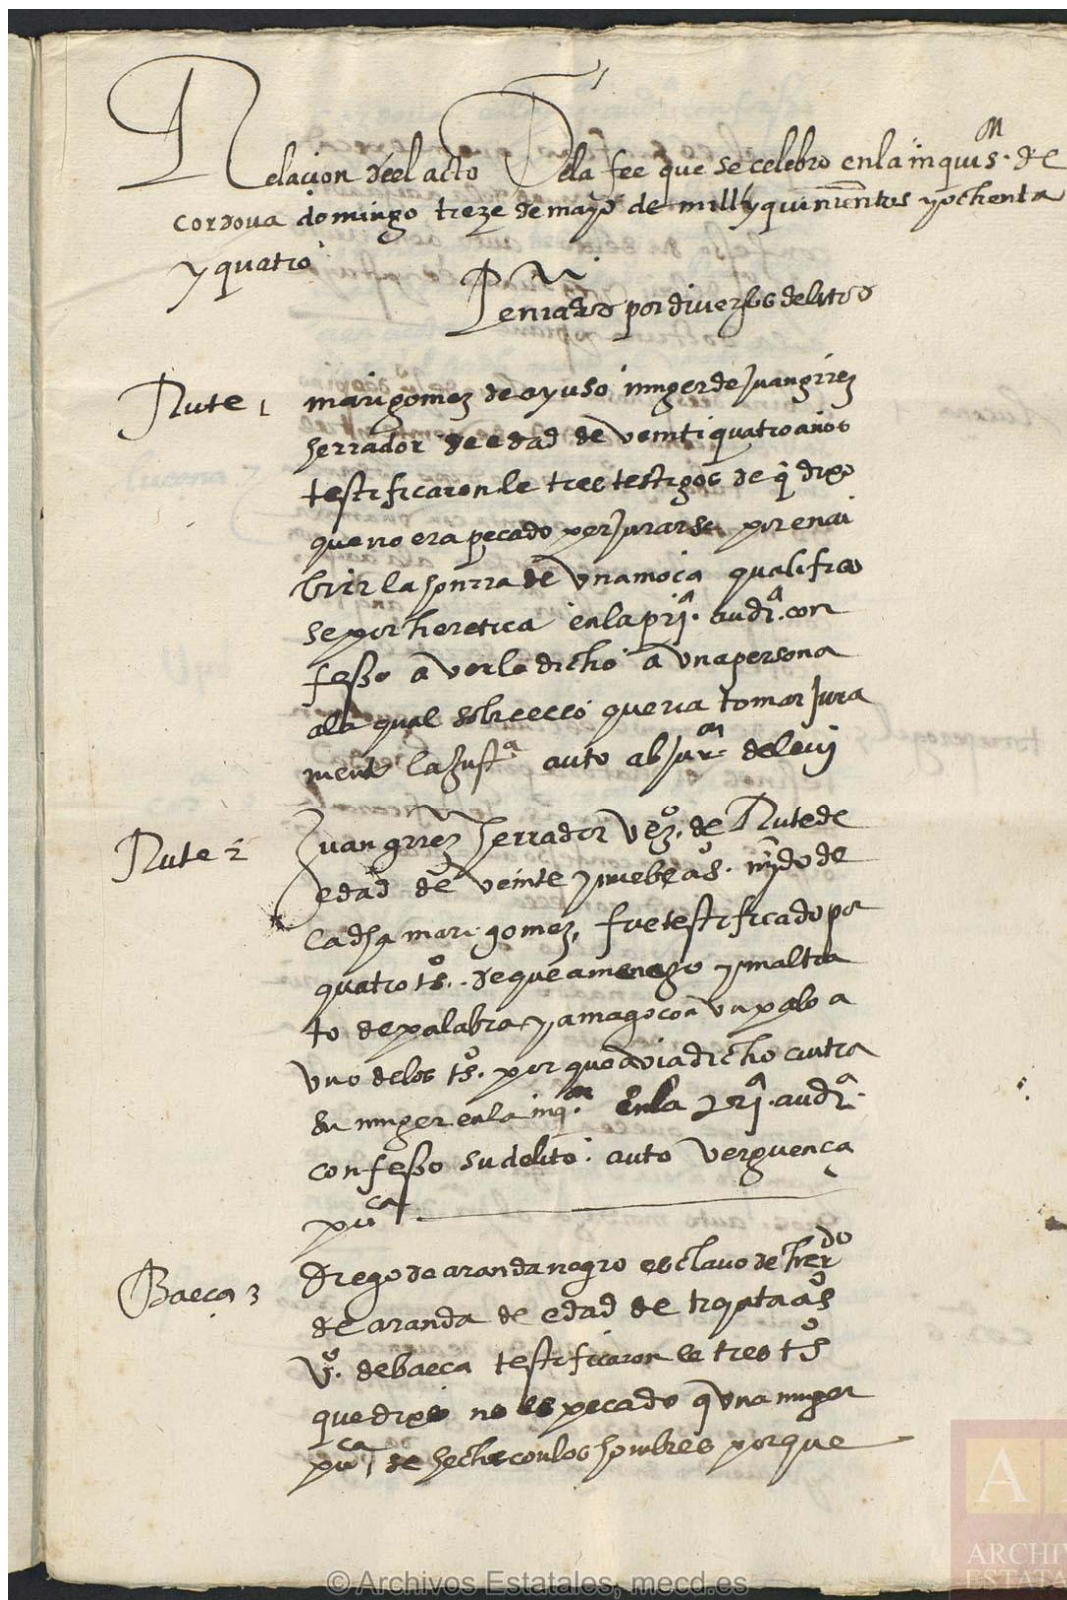 Relacion deel acto Dela fee que se celebro enla inquis.on de
cordova domingo treze de mayo de mill y quinientos y ochenta
y quatro
Peniados por diversos delitos
Rute 1 mari gomez de ayuso muger de Juan grrez
herrador de edad de veinti quatro años
testificaronle tres testigos de q dixo
que no era pecado perjurarse por encu
brir la honrra de vna moça qualifico
se por heretica en la pri.a aud.a con
fesso averlo dicho a vna persona
ala qual sobre ello queria tomar jura
mento la Just.a auto abjur.on de levi
Rute 2 Juan grrez herrador vez.o de Rute de
edad de veinte y nuebe as. mydo de
la dha mari gomez, fue testificado por
quatro ts. de que amenazo y maltra
to de palabra y amago con vn palo a
vno delos ts. por que avia dicho contra
su muger en la inq.on En la pri.a aud.a
confesso su delito. auto verguença
pu.ca
Baeça 3 Diego de aranda negro esclavo de her.do
de aranda de edad de treynta as
v.o de baeça testificaronle tres ts
que dixo no es pecado q vna muger
pu.ca se heche con los hombres porque
© Archivos Estatales, mecd.es
A
ARCHIV
ESTATA